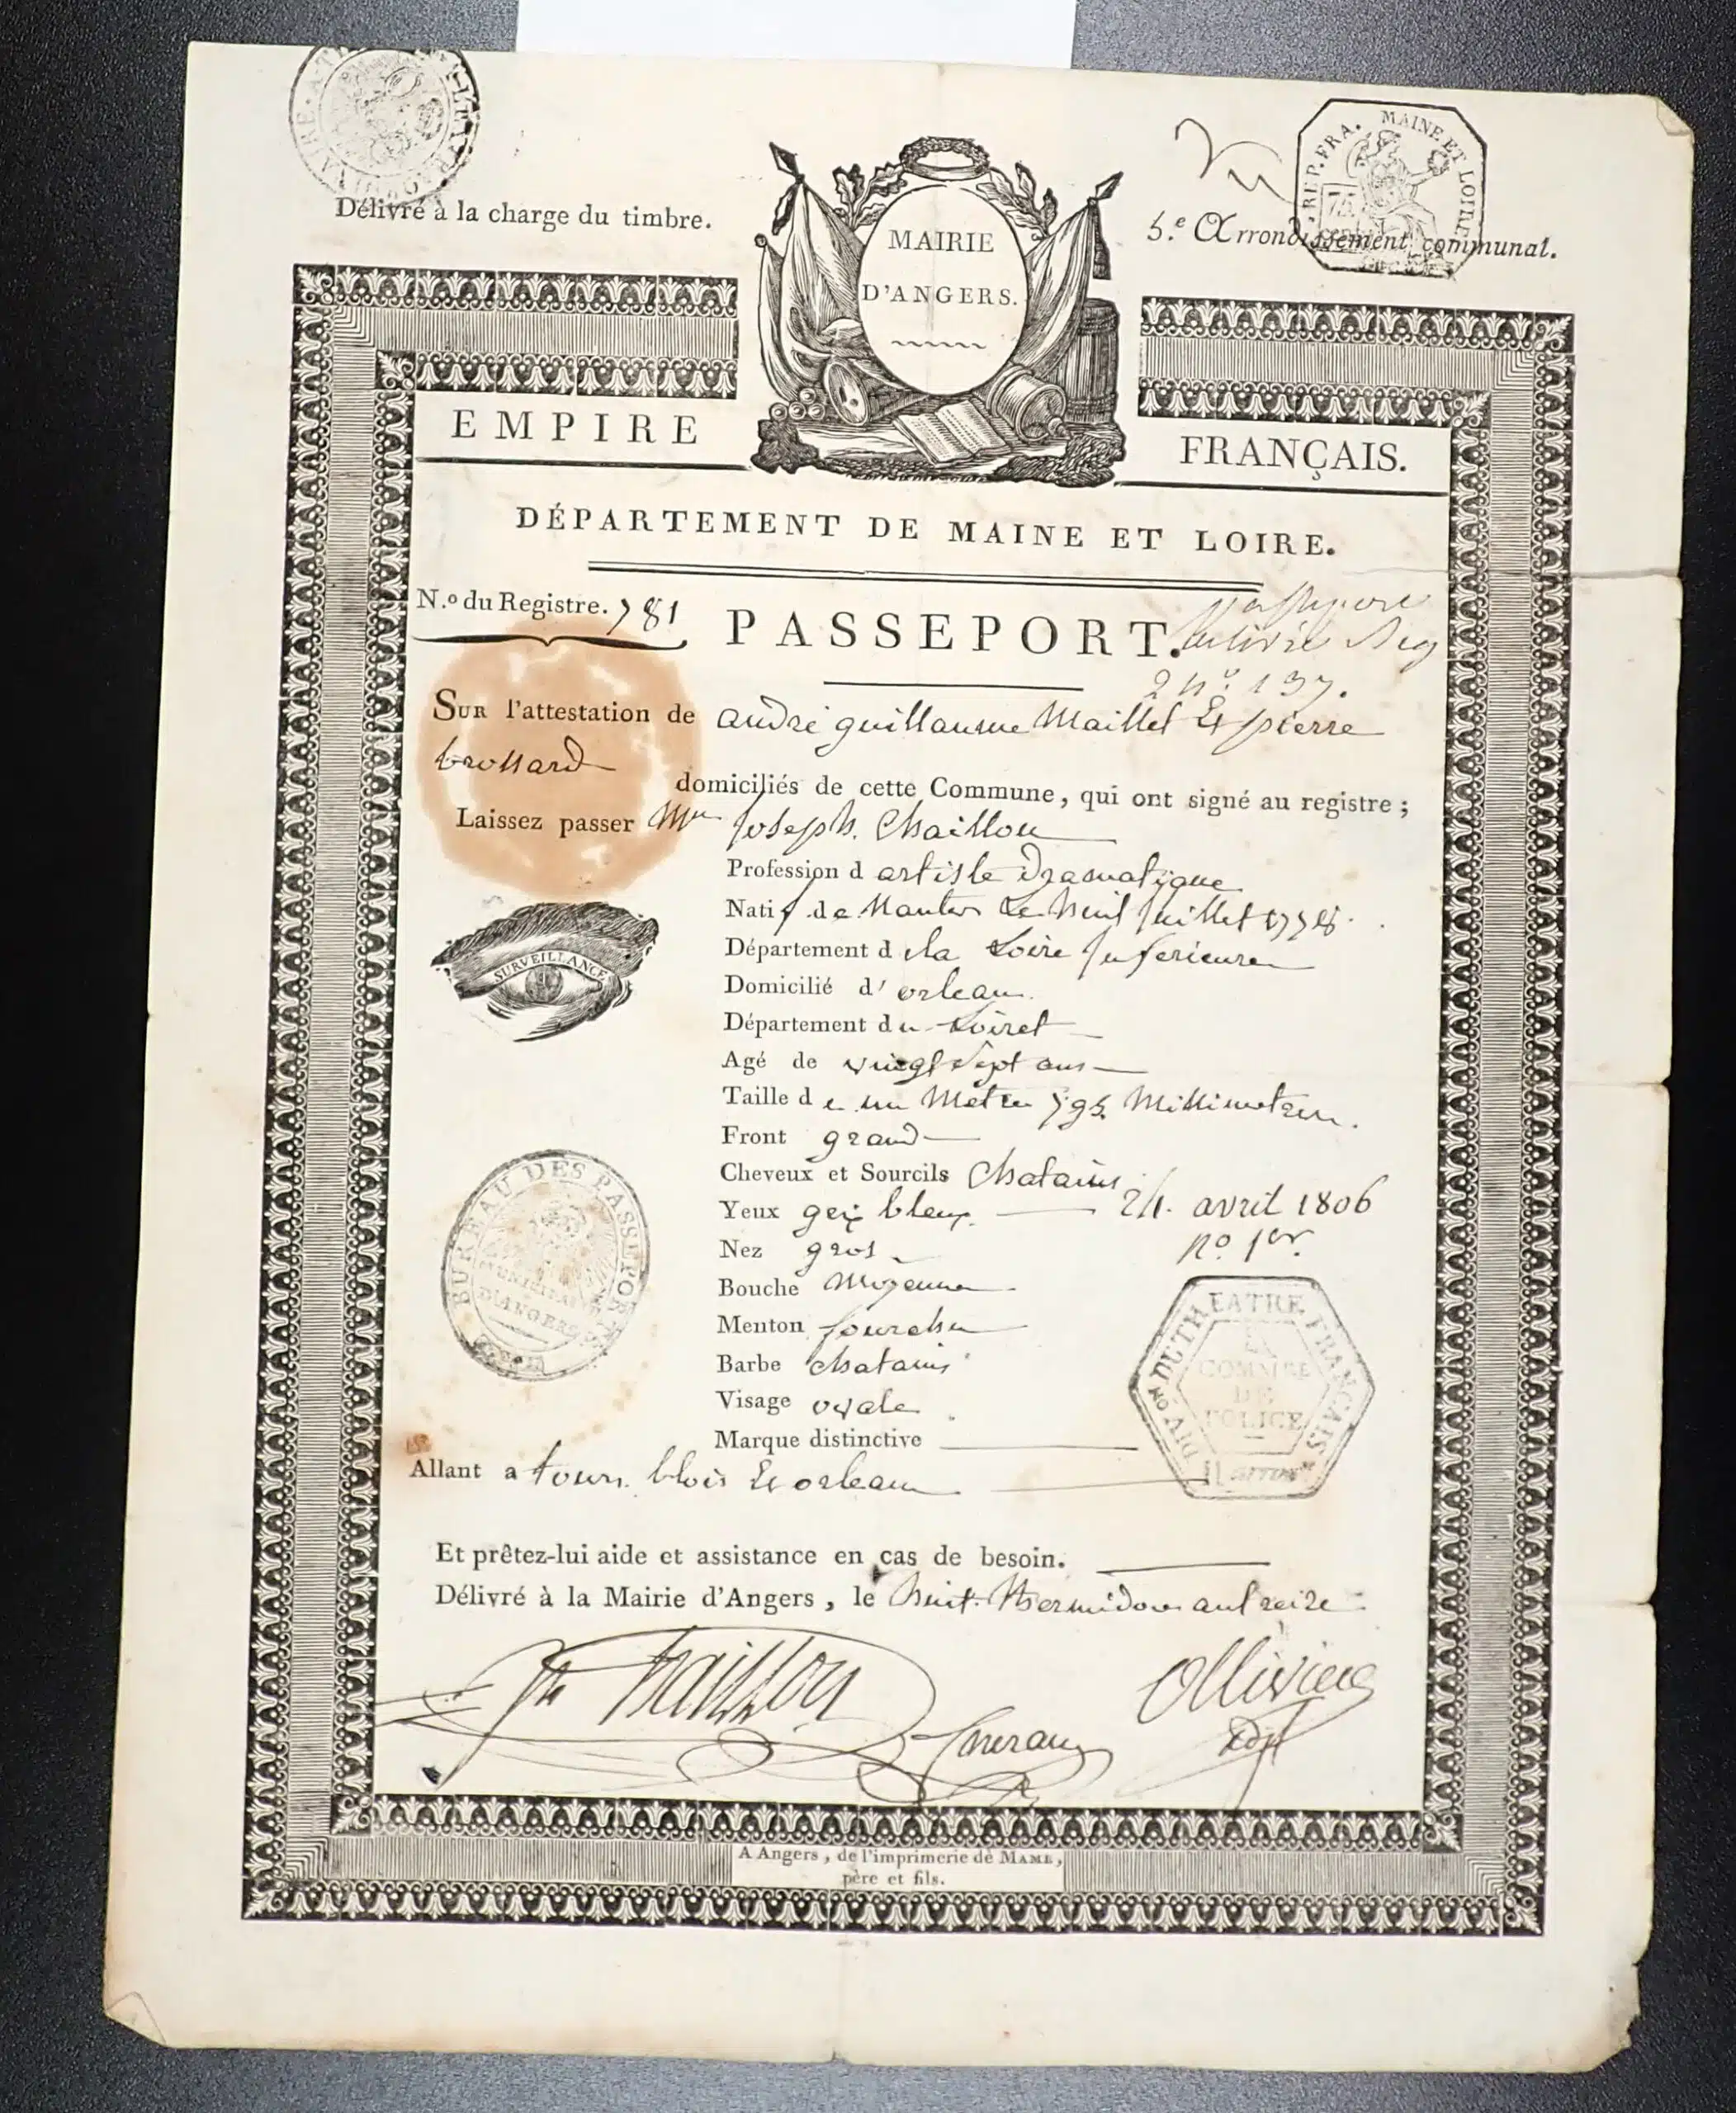 Délivré à la charge du timbre.
REP. FRA. MAINE ET LOIRE
75
5.e Arrondissement communal.
MAIRIE
D'ANGERS.
EMPIRE FRANÇAIS.
DÉPARTEMENT DE MAINE ET LOIRE.
N.º du Registre. 781
PASSEPORT.
passeport
délivré
2 nº. 137.
SUR l'attestation de andré guillaume Maillet Et pierre
brossard
domiciliés de cette Commune, qui ont signé au registre ;
Laissez passer Mr Joseph Chaillou
Profession d artiste Dramatique
Natif de Nantes Le huit Juillet
Département d ela Loire Inferieure
Domicilié d' orleans
Département du Loiret
Agé de vingt Sept ans
Taille de un Metre 795 Millimetres.
Front grand
Cheveux et Sourcils Chatains
Yeux gris bleux. 24. avril 1806
Nez gros nº. 1er.
Bouche Moyenne
Menton fourchu
Barbe Chatains
Visage ovale
Marque distinctive
SURVEILLANCE
BUREAU DES PASSEPORTS
MUNICIPALITÉ
D'ANGERS
DIVon DU THEATRE FRANCAIS
LE
COMMRE
DE
POLICE
Allant a tours blois Et orleans
Et prêtez-lui aide et assistance en cas de besoin.
Délivré à la Mairie d'Angers, le huit Thermidor an treize
Chaillou
Ollivier
Adjt
A Angers, de l'imprimerie de MAME,
père et fils.